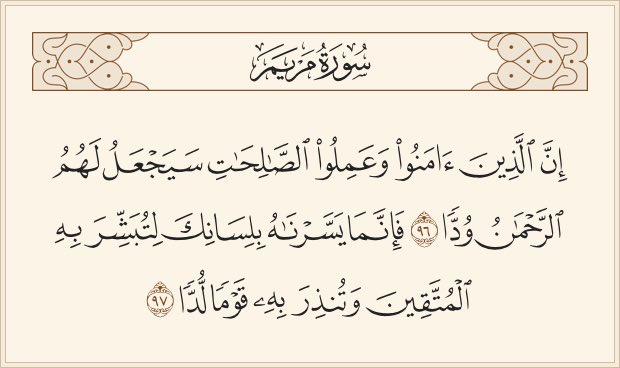 سُورَةُ مَرْيَمَ
إِنَّ ٱلَّذِينَ ءَامَنُوا۟ وَعَمِلُوا۟ ٱلصَّـٰلِحَـٰتِ سَيَجْعَلُ لَهُمُ
ٱلرَّحْمَـٰنُ وُدًّا ٩٦ فَإِنَّمَا يَسَّرْنَـٰهُ بِلِسَانِكَ لِتُبَشِّرَ بِهِ
ٱلْمُتَّقِينَ وَتُنذِرَ بِهِۦ قَوْمًا لُّدًّا ٩٧